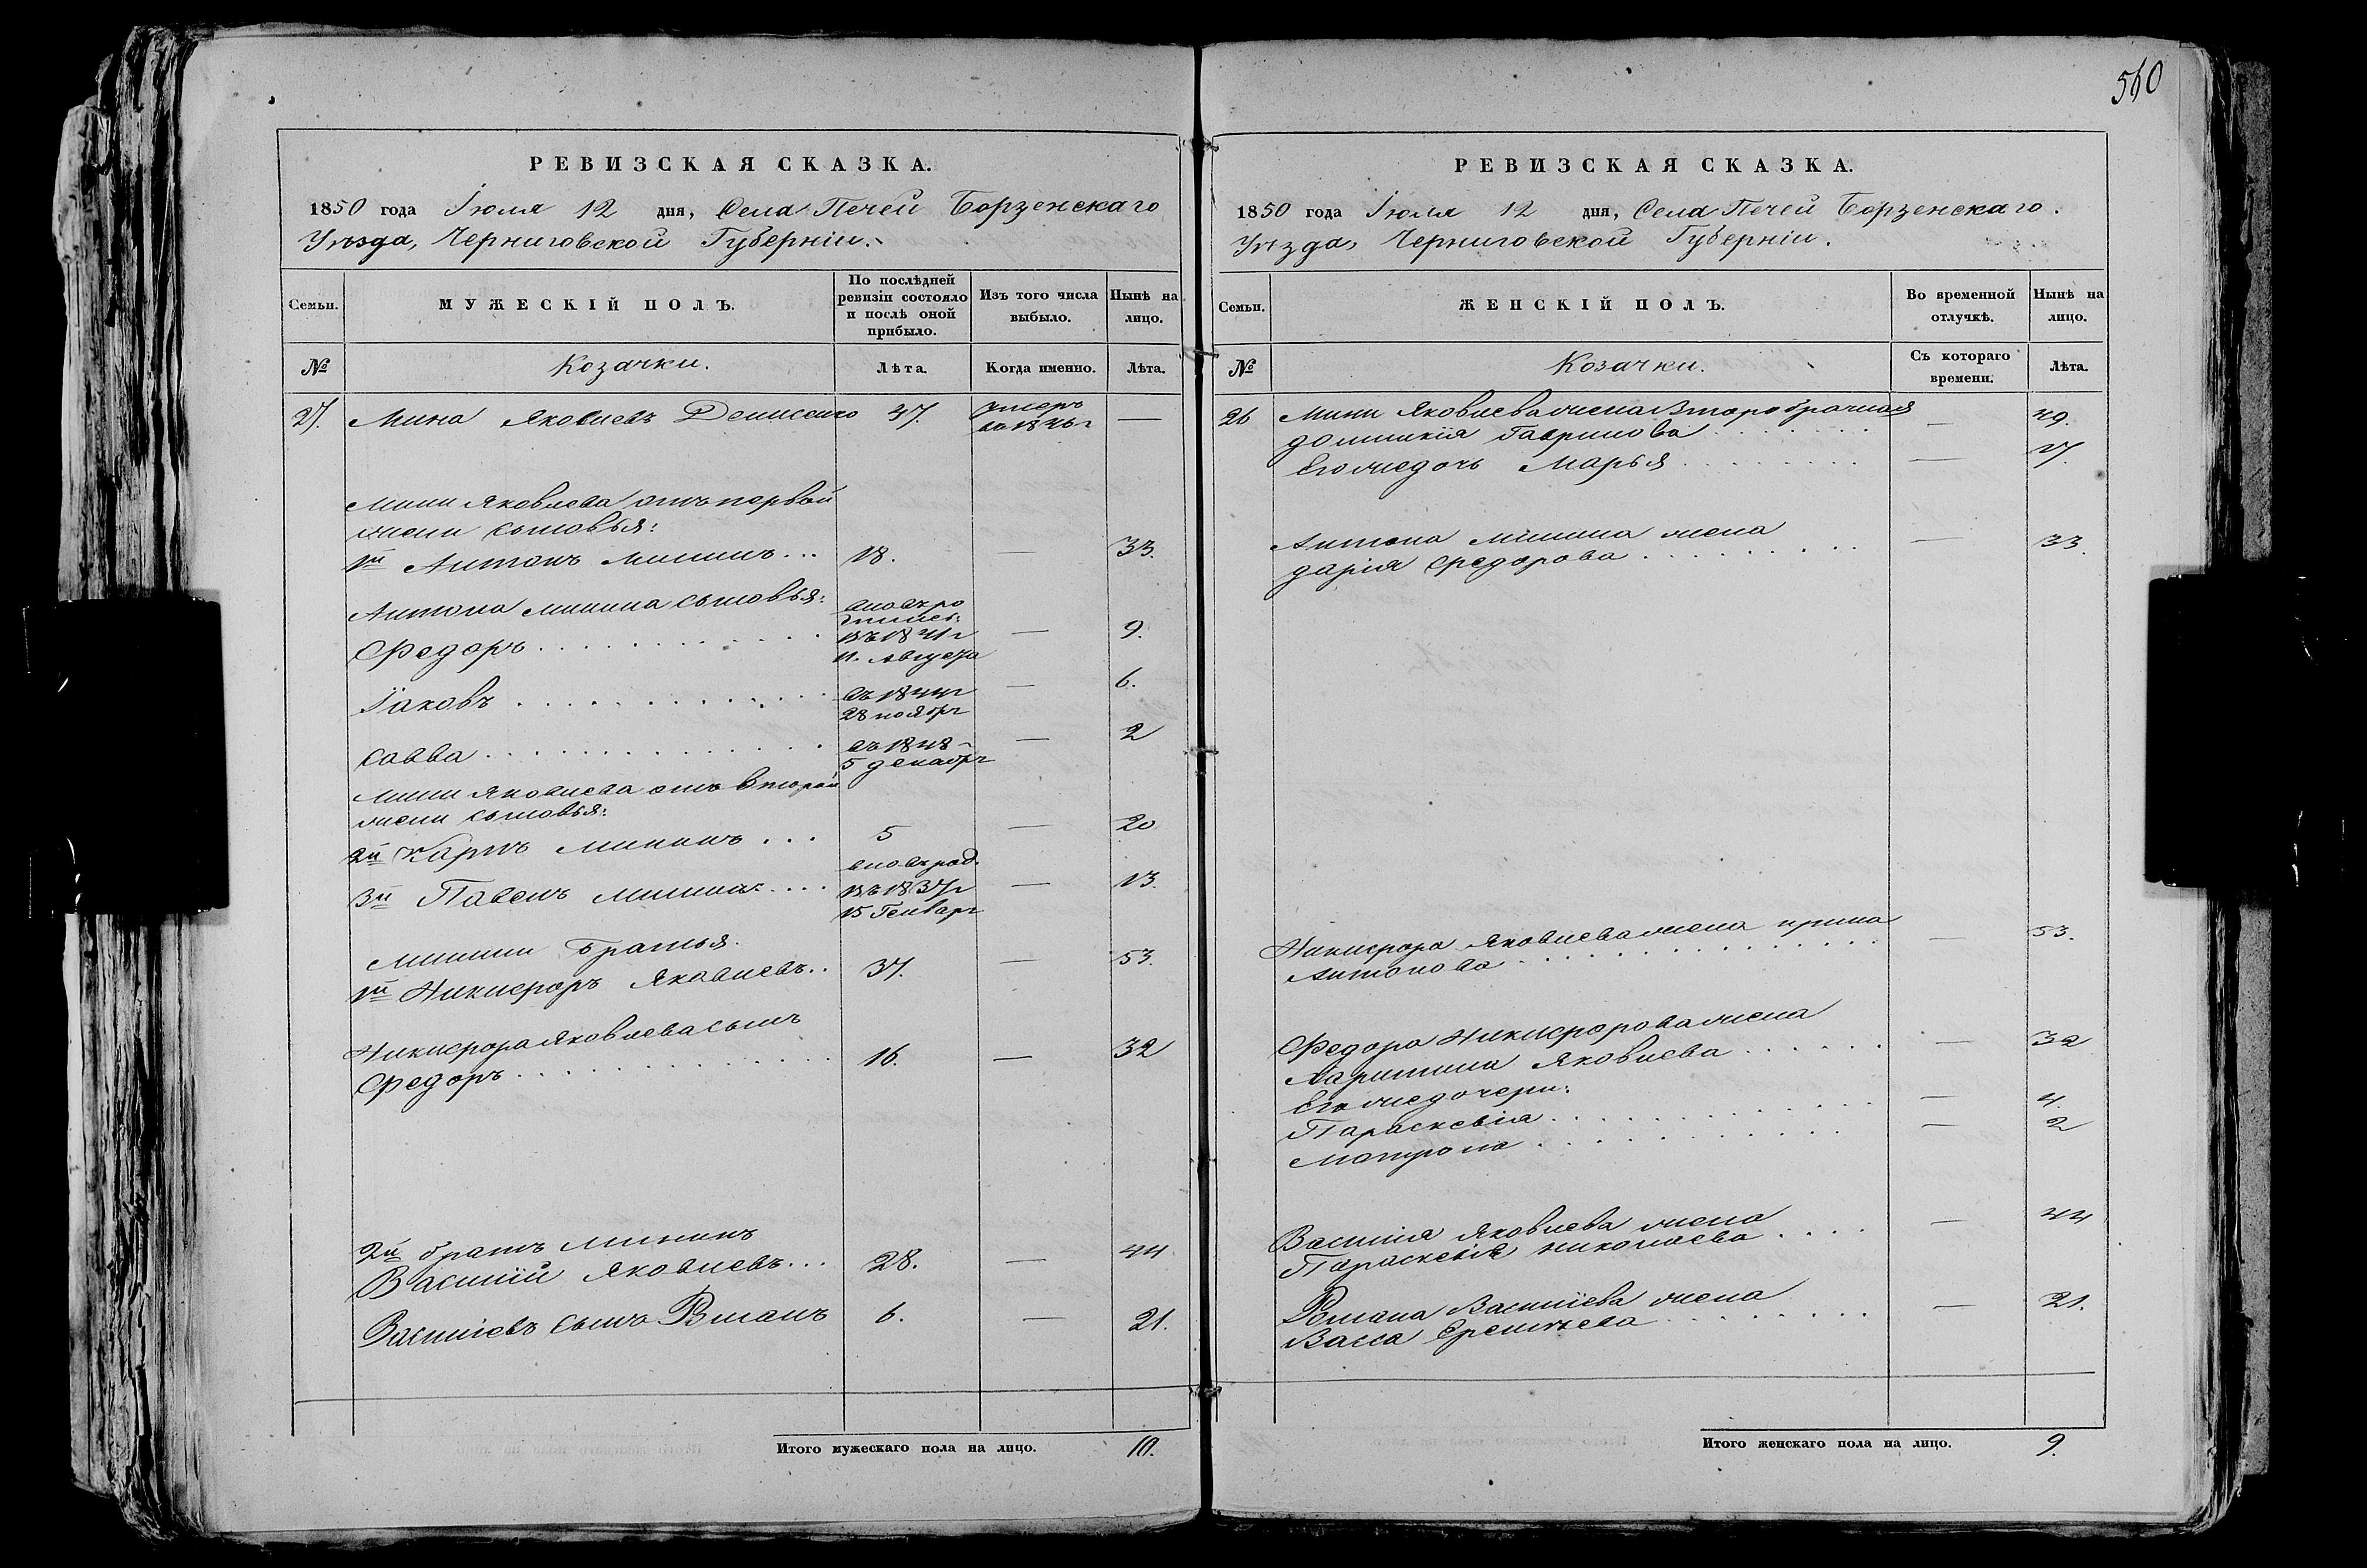 560
РЕВИЗСКАЯ СКАЗКА.
1850 года Іюля 12 дня, Села Печей Борзенскаго
Уѣзда, Черниговской Губерніи.
Семьи.
МУЖЕСКІЙ ПОЛЪ.
По послѣдней
ревизіи состояло
и послѣ оной
прибыло.
Изъ того числа
выбыло.
Нынѣ на
лицо.
№
Козачки.
Лѣта.
Когда именно.
Лѣта.
27. Мина Яковлевъ Денисенко 47. умеръ
въ 1846 г —
Мины Яковлева отъ первой
жены сыновья:
1й Антонъ Мининъ... 18. — 33.
Антона Минина сыновья:
Федоръ вновь ро
въ 1841 г — 9.
11. Августа
Іаковъ въ 1844 г — 6.
28 ноябр
Савва въ 1848 — 2
5 декабр
Мины Яковлева отъ второй
жены сыновья:
2й Карпъ Мининъ... 5 — 20
3й Павелъ Мининъ.... вновь род.
въ 1837 г — 13.
15 Генвар
Минины братья.
1й Никифоръ Яковлевъ.. 37. — 53.
Никифора Яковлева сынъ
Федоръ 16. — 32
2й братъ Мининъ
Василій Яковлевъ... 28. — 44
Васильевъ сынъ Романъ 6. — 21.
Итого мужескаго пола на лицо. 10.
РЕВИЗСКАЯ СКАЗКА.
1850 года Іюля 12 дня, Села Печей Борзенскаго.
Уѣзда, Черниговской Губерніи.
Семьи.
ЖЕНСКІЙ ПОЛЪ.
Во временной
отлучкѣ.
Нынѣ на
лицо.
№
Козачки.
Съ котораго
времени.
Лѣта.
26 Мины Яковлева жена второбрачная
домникія Гаврилова — 49.
Его же дочь Марья — 17.
Антона Минина жена
дарія Федорова — 33.
Никифора Яковлева жена ирина
Антонова — 53.
Федора Никифорова жена
Харитина Яковлева — 32
Его же дочери:
Параскевія — 4.
Матрона — 2
Василія Яковлева жена
Параскевія николаева — 44
Романа Васильева жена
Васса Еремѣева — 21.
Итого женскаго пола на лицо. 9.